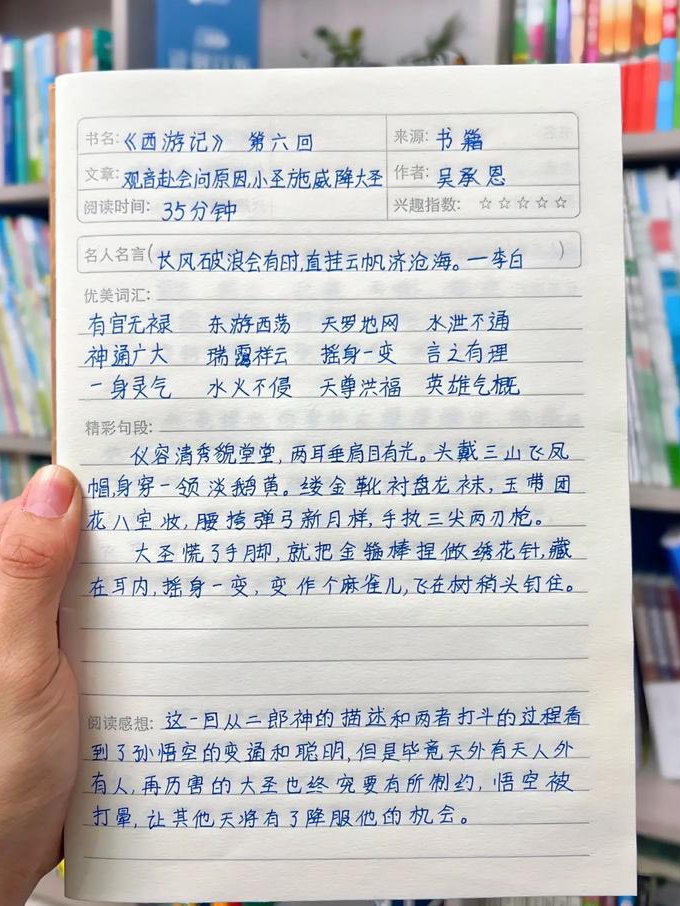 书名:《西游记》 第六回 来源: 书籍
文章: 观音赴会问原因,小圣施威降大圣 作者: 吴承恩
阅读时间: 35分钟 兴趣指数: ☆☆☆☆☆
名人名言(长风破浪会有时,直挂云帆济沧海。一李白)
优美词汇:
有官无禄 东游西荡 天罗地网 水泄不通
神通广大 瑞霭祥云 摇身一变 言之有理
一身灵气 水火不侵 天尊洪福 英雄气概
精彩句段:
仪容清秀貌堂堂,两耳垂肩目有光。头戴三山飞凤
帽,身穿一领淡鹅黄。缕金靴衬盘龙袜,玉带团
花八宝妆,腰挎弹弓新月样,手执三尖两刃枪。
大圣慌了手脚,就把金箍棒捏做绣花针,藏
在耳内,摇身一变,变作个麻雀儿,飞在树梢头钉住。
阅读感想: 这一回从二郎神的描述和两者打斗的过程看
到了孙悟空的变通和聪明,但是毕竟天外有天人外
有人,再厉害的大圣也终究要有所制约,悟空被
打晕,让其他天将有了降服他的机会。